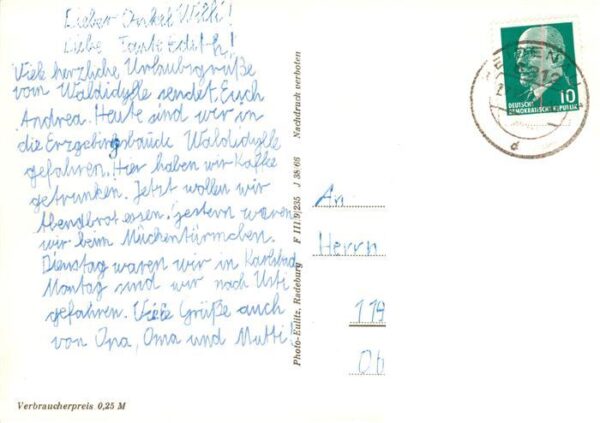 Lieber Onkel Willi!
Liebe Tante Edith!
Viele herzliche Urlaubsgrüße
vom Waldidylle sendet Euch
Andrea. Heute sind wir in
die Erzgebirgsbaude Waldidylle
gefahren. Hier haben wir Kaffee
getrunken. Jetzt wollen wir
Abendbrot essen. gestern waren
wir beim Mückentürmchen.
Dienstag waren wir in Karlsbad
Montag sind wir nach Usti
gefahren. Viele Grüße auch
von Opa, Oma und Mutti!
Verbraucherpreis 0,25 M
Photo-Eulitz, Radeburg F III/9/235 J 38/66 Nachdruck verboten
DEUTSCHE
DEMOKRATISCHE REPUBLIK
10
d
An
Herrn
119
Ob